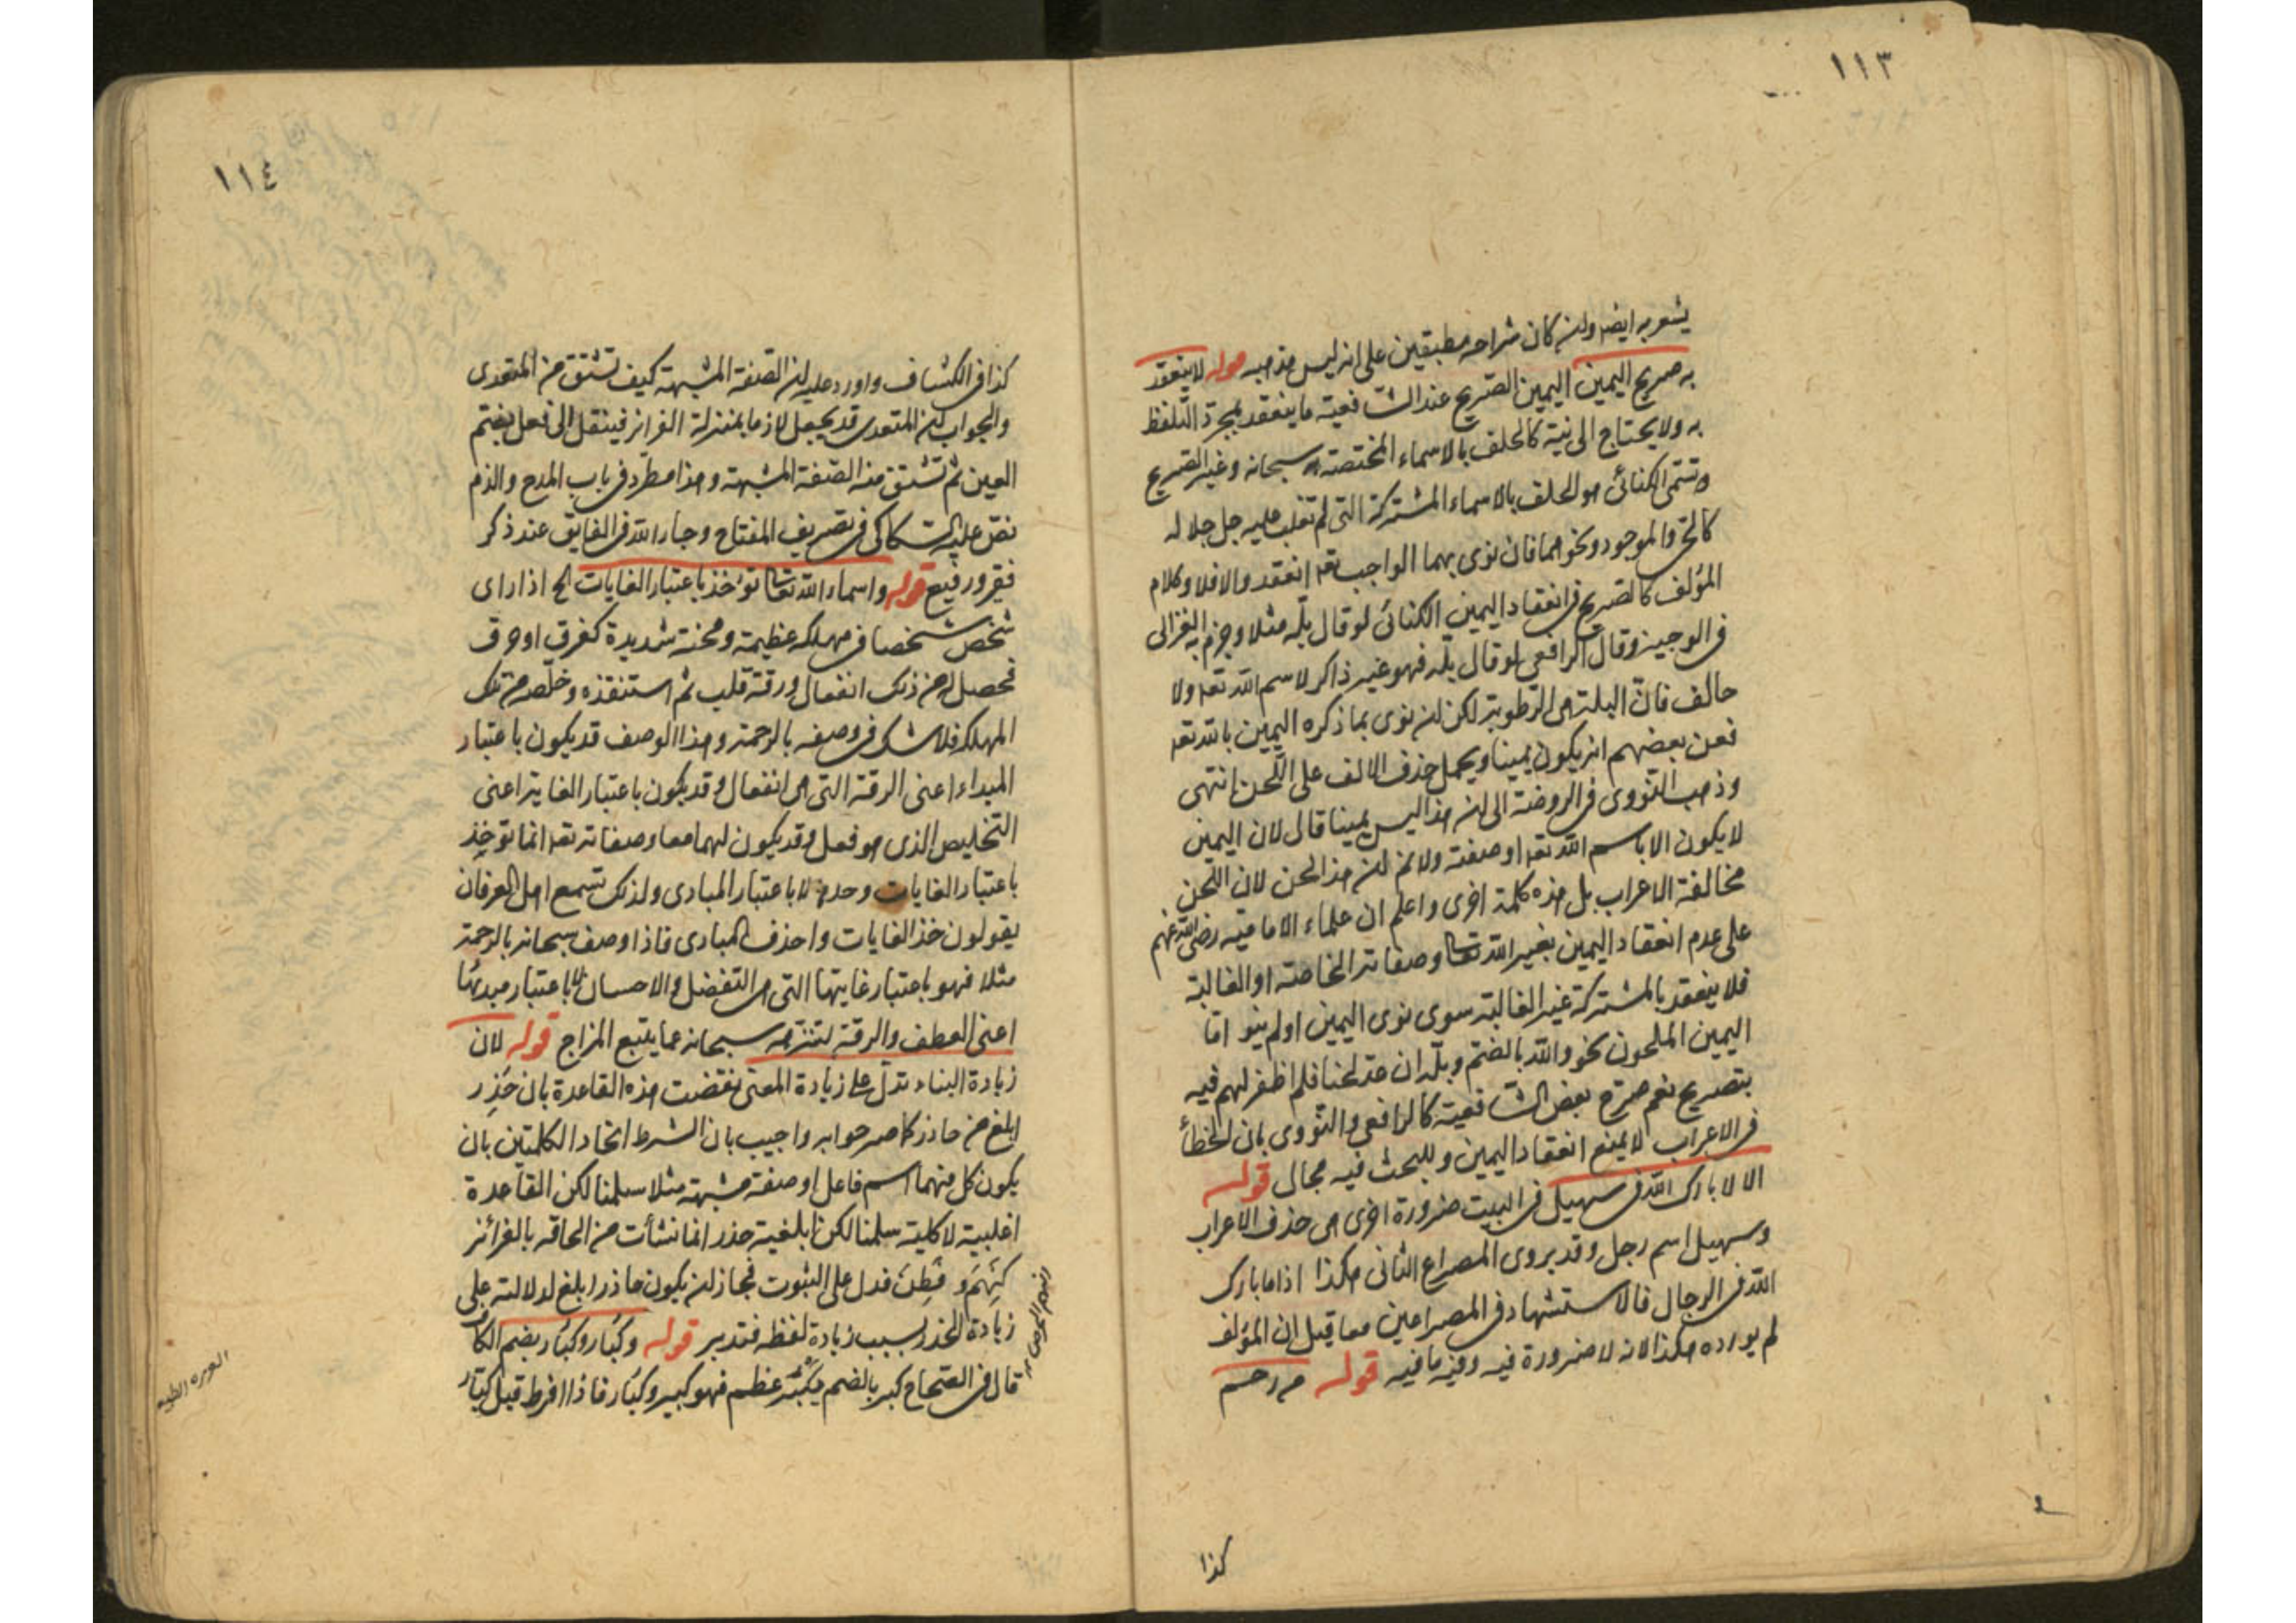 ١١٣
يشعر به ايضا وان كان شراحه مطبقين على انه ليس مذهبه قوله لا ينعقد
به صريح اليمين اليمين الصريح عند الشافعية ما ينعقد بمجرد التلفظ
به ولا يحتاج الى نية كالحلف بالاسماء المختصة به سبحانه وغير الصريح
وتسمى الكنائى هو الحلف بالاسماء المشتركة التى لم تغلب عليه جل جلاله
كالحى والموجود ونحوهما فان نوى بهما الواجب تعه انعقد والا فلا وكلام
المؤلف كالصريح فى انعقاد اليمين الكنائى لو قال بلّه مثلا وجزم به الغزالى
فى الوجيز وقال الرافعى لو قال بلّه فهو غير ذاكر لاسم الله تعه ولا
حالف فان البلة هى الرطوبة لكن ان نوى بما ذكره اليمين بالله تعه
فعن بعضهم انه يكون يمينا ويحمل حذف الالف على اللحن انتهى
وذهب النووى فى الروضة الى ان هذا ليس يمينا قال لان اليمين
لا يكون الا باسم الله تعه او صفته ولا نم ان هذا لحن لان اللحن
مخالفة الاعراب بل هذه كلمة اخرى واعلم ان علماء الامامية رضى الله عنهم
على عدم انعقاد اليمين بغير الله تعا وصفاته الخاصة او الغالبة
فلا ينعقد بالمشتركة غير الغالبة سوى نوى اليمين او لم ينو اما
اليمين الملحون نحو والله بالضم وبلّه ان عد لحنا فلم اظفر لهم فيه
بتصريح نعم صرح بعض الشافعية كالرافعى والنووى بان الخطأ
فى الاعراب لا يمنع انعقاد اليمين وللبحث فيه مجال قوله
الا لا بارك الله فى سهيل فى البيت ضرورة اخرى هى حذف الاعراب
وسهيل اسم رجل وقد يروى المصراع الثانى هكذا اذا ما بارك
الله فى الرجال فالاستشهاد فى المصراعين معا قيل ان المؤلف
لم يورده هكذا لانه لا ضرورة فيه وفيه ما فيه قوله من رحم
كذا
١١٤
كذا فى الكشاف واورد عليه ان الصفة المشبهة كيف تشتق من المتعدى
والجواب ان المتعدى قد يجعل لازما بمنزلة الغرائز فينقل الى فعل بضم
العين ثم تشتق منه الصفة المشبهة وهذا مطرد فى باب المدح والذم
نص عليه السكاكى فى تصريف المفتاح وجار الله فى الفايق عند ذكر
فقير ورفيع قوله واسماء الله تعا تؤخذ باعتبار الغايات الخ اذا راى
شخص شخصا فى مهلكه عظيمة ومحنة شديدة كغرق او حرق
فحصل له من ذلك انفعال ورقة قلب ثم استنقذه وخلصه من تلك
المهلكه فلا شك فى وصفه بالرحمة وهذا الوصف قد يكون باعتبار
المبداء اعنى الرقة التى هى انفعال وقد يكون باعتبار الغاية اعنى
التخليص الذى هو فعل وقد يكون لهما معا وصفاته تعه انما تؤخذ
باعتبار الغايات وحدها لا باعتبار المبادى ولذلك تسمع اهل العرفان
يقولون خذ الغايات واحذف المبادى فاذا وصف سبحانه بالرحمة
مثلا فهو باعتبار غايتها التى هى التفضل والاحسان لا باعتبار مبدئها
اعنى العطف والرقة لتنزهه سبحانه عما يتبع المزاج قوله لان
زيادة البناء تدل على زيادة المعنى نقضت هذه القاعدة بان حَذِر
ابلغ من حاذر كما صرحوا به واجيب بان الشرط اتحاد الكلمتين بان
يكون كل منهما اسم فاعل او صفة مشبهة مثلا سلمنا لكن القاعدة
اغلبية لا كلية سلمنا لكن ابلغية حذر انما نشأت من الحاقه بالغرائز
كنَهِمٍ وفَطِنٍ فدل على الثبوت فجاز ان يكون حاذر ابلغ لدلالته على
زيادة الحذر بسبب زيادة لفظه فتدبر قوله وكُبَار وكُبّار بضم الكاف
قال فى الصحاح كبر بالضم يكبُر عظم فهو كبير وكبار فاذا افرط قيل كبّار